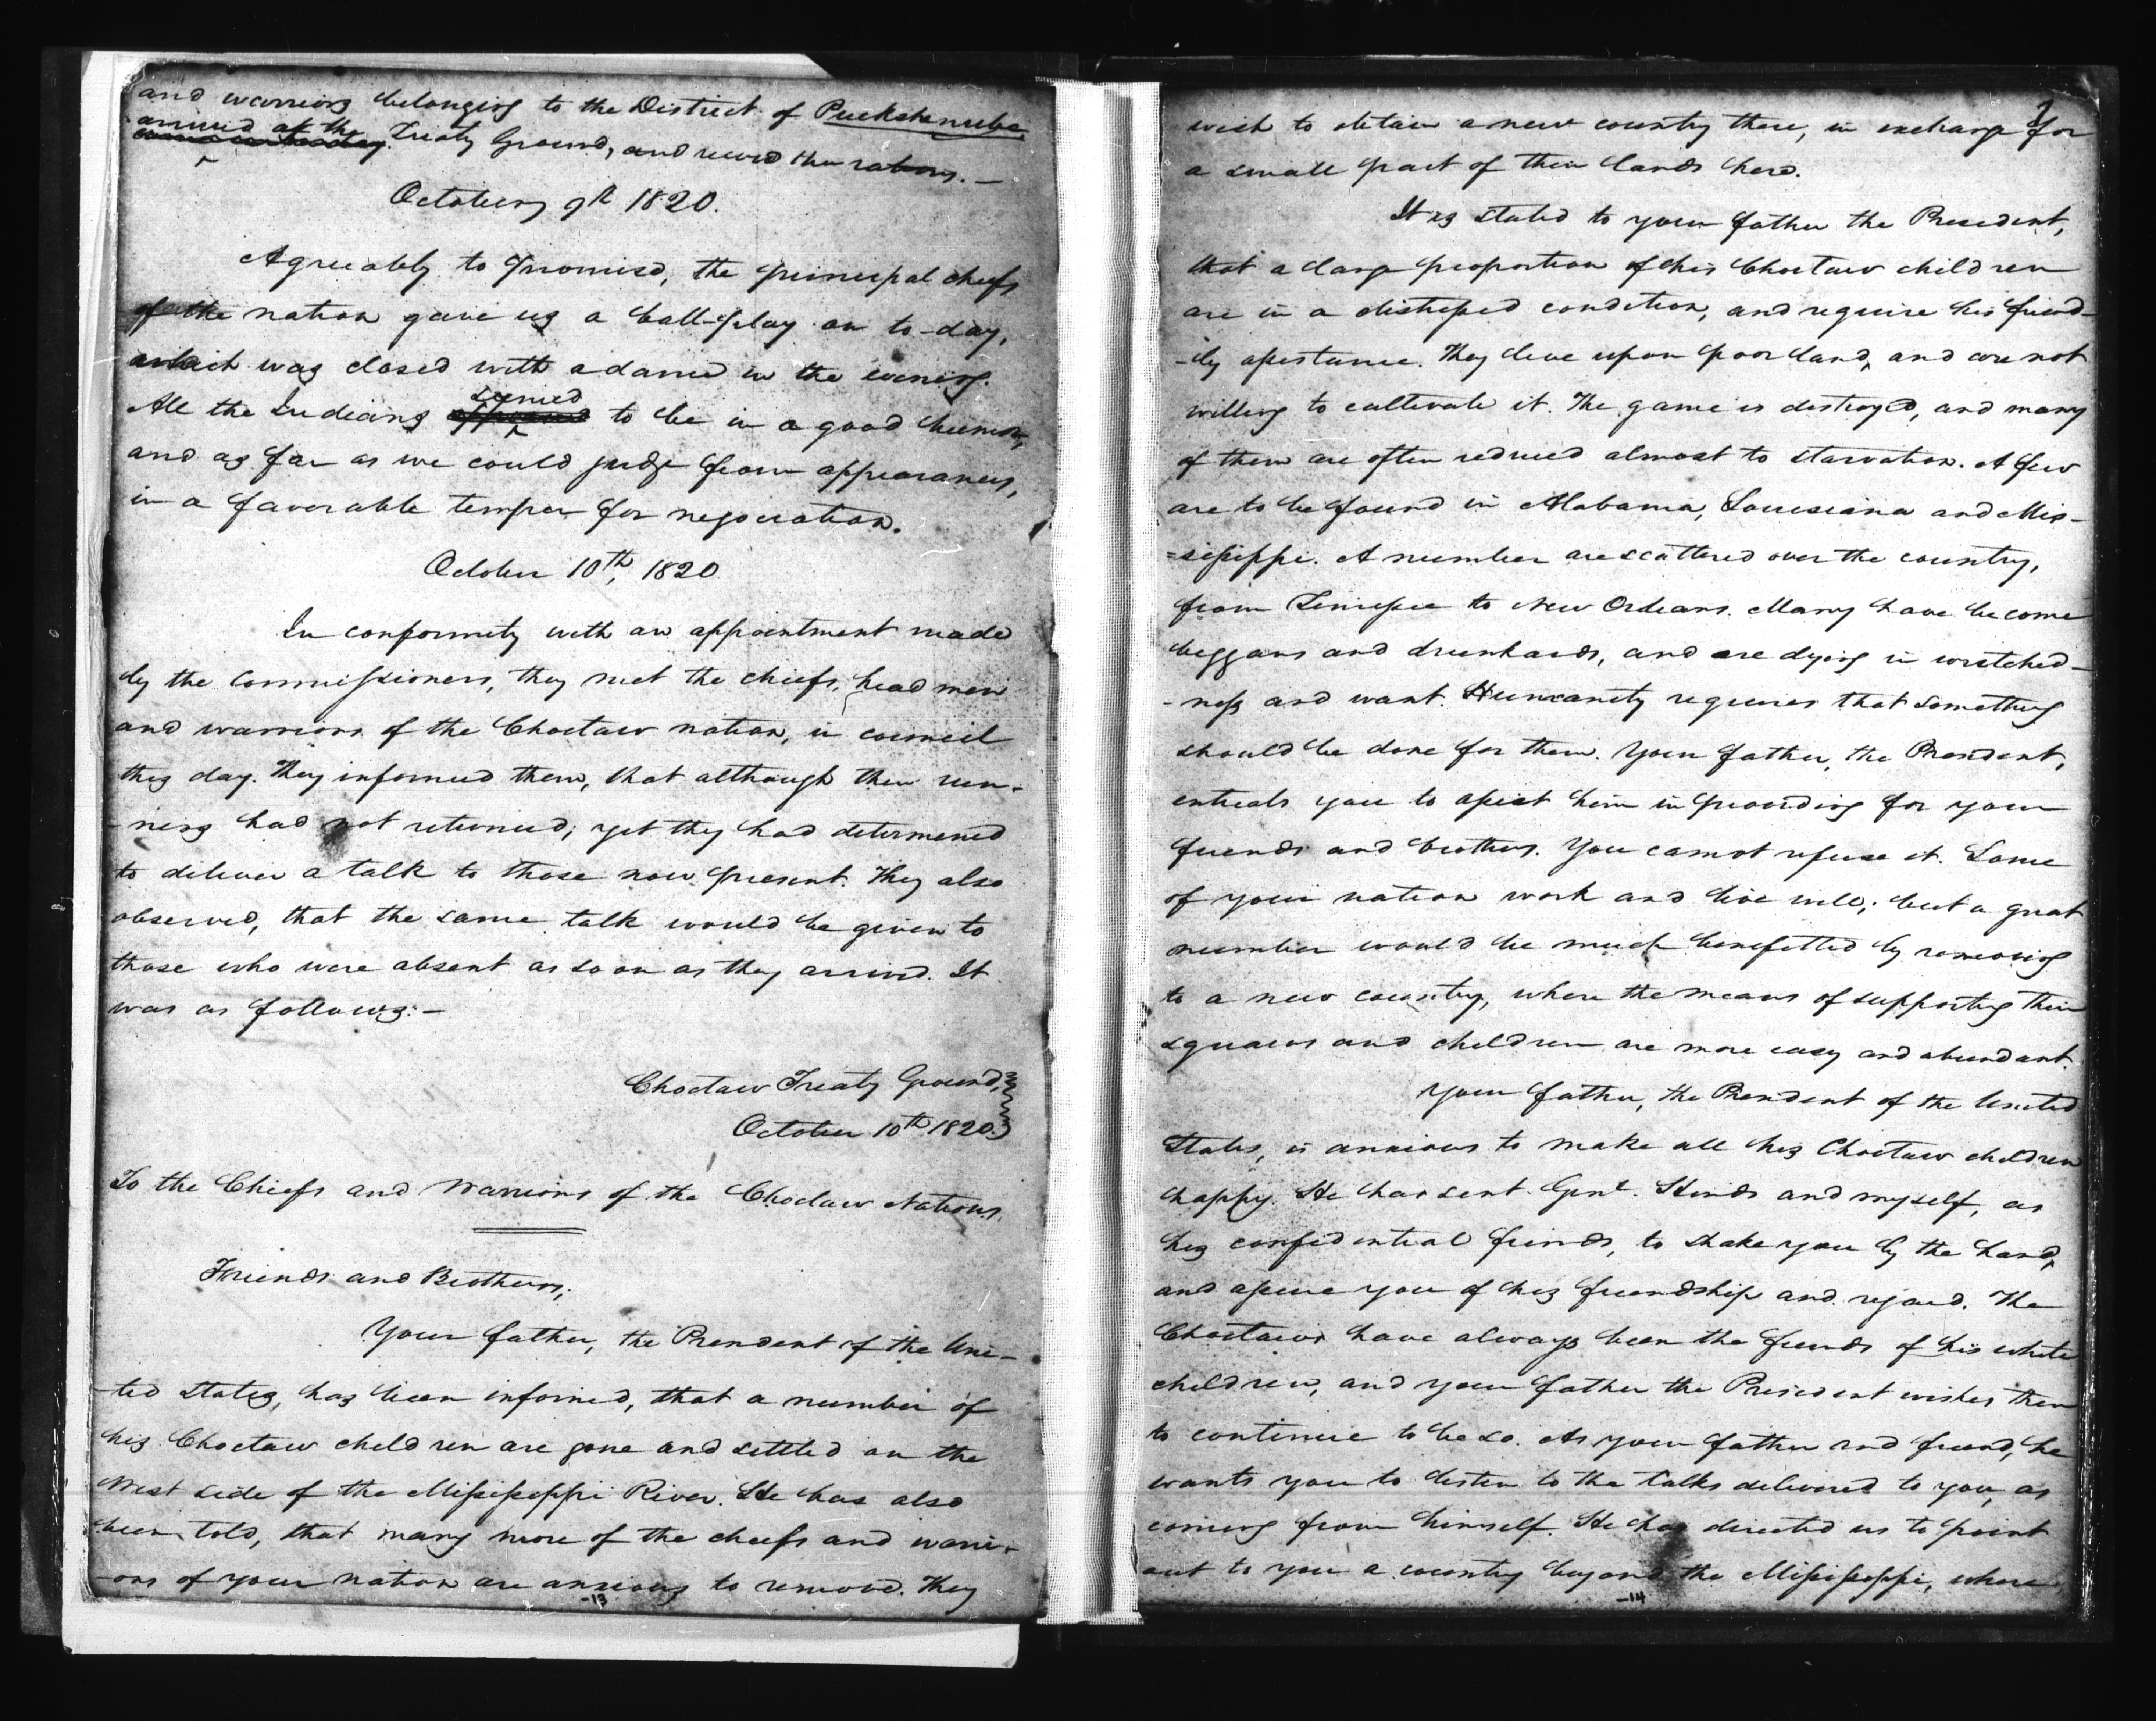 and warriors belonging to the District of Puckshenubee
arrived at the
came in to-day. Treaty Ground, and receivd their rations. —
October 9th 1820.
Agreeably to promise, the principal chiefs
of the nation gave us a ball-play on to-day,
which was closed with a dance in the evening.
seemed
All the Indians appeared to be in a good humor,
and as far as we could judge from appearances,
in a favorable temper for negociation.
October 10th, 1820
In conformity with an appointment made
by the Commissioners, they met the chiefs, head men
and warriors of the Choctaw nation, in council
this day. They informed them, that although their run-
-ners had not returned; yet they had determined
to deliver a talk to those now present. They also
observed, that the same talk would be given to
those who were absent as soon as they arrived. It
was as follows: —
Choctaw Treaty Ground,
October 10th 1820.
To the Chiefs and Warriors of the Choctaw Nation.
Friends and Brothers,
Your father, the President of the Uni-
-ted States, has been informed, that a number of
his Choctaw children are gone and settled on the
West side of the Missisippi River. He has also
been told, that many more of the chiefs and warri-
-ors of your nation are anxious to remove. They
-13
wish to obtain a new country there, in exchange for
a small part of their lands here.
It is stated to your father the President,
that a large proportion of his Choctaw children
are in a distressed condition, and require his friend-
-ly assistance. They live upon poor land, and are not
willing to cultivate it. The game is destroyed, and many
of them are often reduced almost to starvation. A few
are to be found in Alabama, Louisiana and Mis-
=sissippi. A number are scattered over the country,
from Tennessee to New Orleans. Many have become
beggars and drunkards, and are dying in wretched-
-ness and want. Humanity requires that something
should be done for them. Your father, the President,
entreats you to assist him in providing for your
friends and brothers. You cannot refuse it. Some
of your nation work and live well; but a great
number would be much benefitted by removing
to a new country, where the means of supporting their
squaws and children are more easy and abundant.
Your father, the President of the United
States, is anxious to make all his Choctaw children
happy. He has sent Genl. Hinds and myself, as
his confidential friends, to shake you by the hand,
and assure you of his friendship and regard. The
Choctaws have always been the friends of his white
children, and your father the President wishes them
to continue to be so. As your father and friend, he
wants you to listen to the talks delivered to you, as
coming from himself. He has directed us to point
out to you a country beyond the Missisippi, where
-14